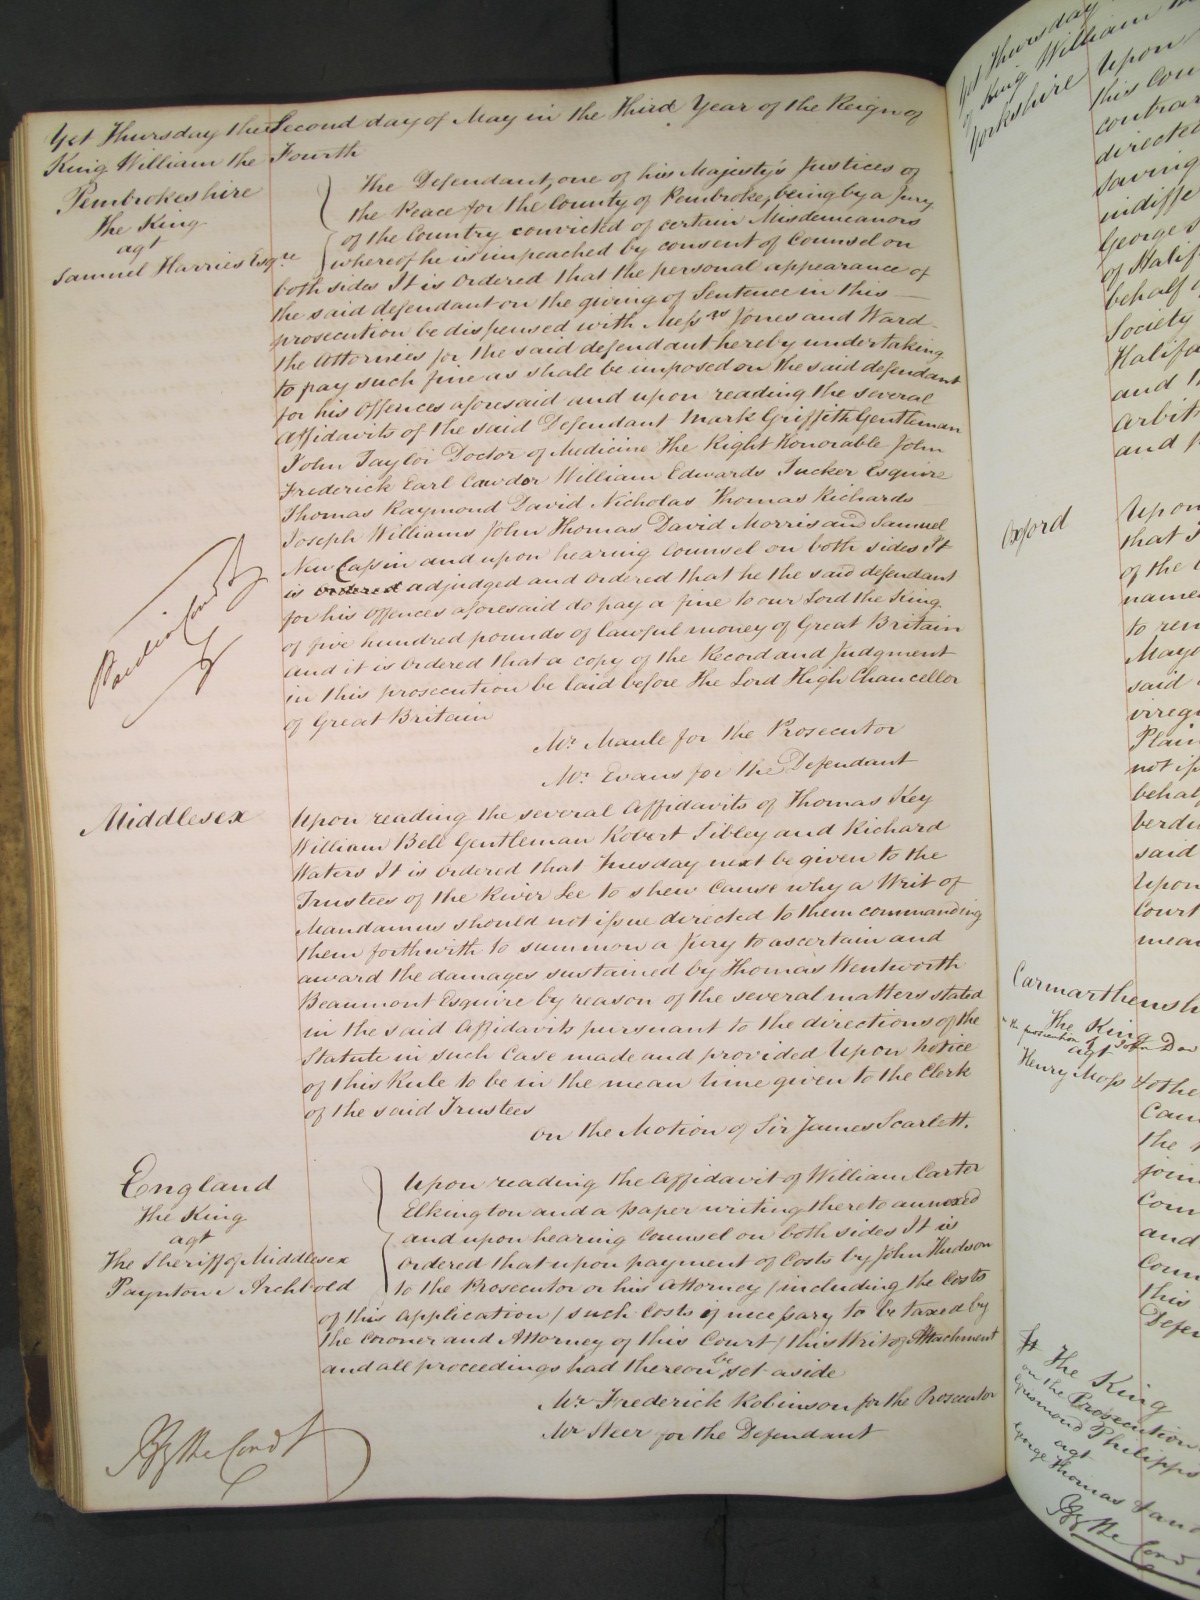 Yet Thursday the Second day of May in the Third Year of the Reign of
King William the Fourth
Pembrokeshire
The King
agt
Samuel Harries Esqre
The Defendant, one of his Majesty's Justices of
the Peace for the County of Pembroke, being by a Jury
of the Country convicted of certain Misdemeanors
whereof he is impeached by consent of Counsel on
both sides It is Ordered that the personal appearance of
the said defendant on the giving of Sentence in this
prosecution be dispensed with Messrs Jones and Ward
the Attornies for the said defendant hereby undertaking
to pay such fine as shall be imposed on the said defendant
for his Offences aforesaid and upon reading the several
Affidavits of the said Defendant Mark Griffith Gentleman
John Taylor Doctor of Medicine The Right Honorable John
Frederick Earl Cawdor William Edwards Tucker Esquire
Thomas Raymond David Nicholas Thomas Richards
Joseph Williams John Thomas David Morris and Samuel
New Cassin and upon hearing Counsel on both sides It
is ordered adjudged and ordered that he the said defendant
for his offences aforesaid do pay a fine to our Lord the King
of five hundred pounds of lawful money of Great Britain
and it is ordered that a copy of the Record and Judgment
in this prosecution be laid before the Lord High Chancellor
of Great Britain
Mr Maule for the Prosecutor
Mr Evans for the Defendant
Middlesex
Upon reading the several Affidavits of Thomas Key
William Bell Gentleman Robert Sibley and Richard
Waters It is ordered that Tuesday next be given to the
Trustees of the River Lee to shew Cause why a Writ of
Mandamus should not issue directed to them commanding
them forthwith to summon a Jury to ascertain and
award the damages sustained by Thomas Wentworth
Beaumont Esquire by reason of the several matters stated
in the said Affidavits pursuant to the directions of the
Statute in such Case made and provided Upon notice
of this Rule to be in the mean time given to the Clerk
of the said Trustees
On the Motion of Sir James Scarlett.
England
The King
agt
The Sheriff of Middlesex
Paynton v Archbold
Upon reading the Affidavit of William Carter
Elkington and a paper writing thereto annexed
and upon hearing Counsel on both sides It is
ordered that upon payment of Costs by John Hudson
to the Prosecutor or his Attorney / including the Costs
of this Application / such Costs if necessary to be taxed by
the Coroner and Attorney of this Court / this Writ of Attachment
and all proceedings had thereon be set aside
Mr Frederick Robinson for the Prosecutor
Mr Steer for the Defendant
Yet Thursday
of King William
Yorkshire
Upon
this Cou
contrar
directed
saving
indiffe
George
of Halif
behalf
Society
Halifa
and
Arbit
and
Oxford
Upon
that
of the
name
to ren
Mayo
said
viregi
Plain
not if
behal
verdi
said
Upon
Court
mean
Carmarthensh
The King
on the prosecution of John Dav
agt
Henry Moss & othe
the
join
Coun
and
Coun
this
Defen
The King
on the Prosecution
Philipps
agt
George Thomas